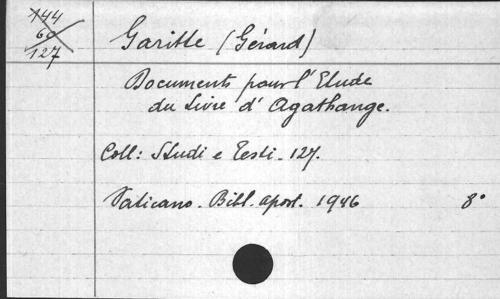 144
60
127
Garitte (Gérard)
Documents pour l'Etude
du Livre d'Agathange.
Coll: Studi e Testi - 127.
Vaticano - Bibl. apost. 1946 8°